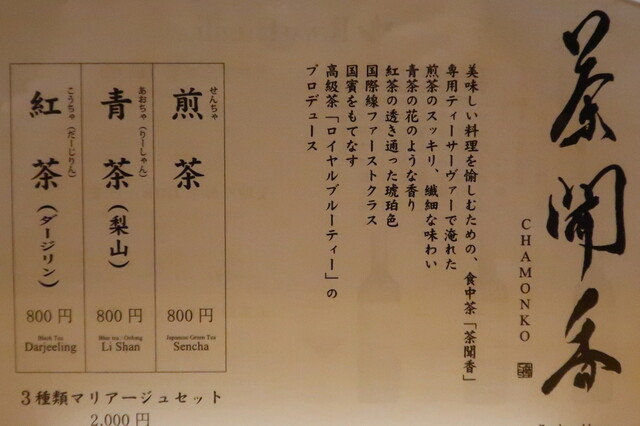 茶聞香
CHAMONKO
美味しい料理を愉しむための、食中茶「茶聞香」
専用ティーサーヴァーで淹れた
煎茶のスッキリ、繊細な味わい
青茶の花のような香り
紅茶の透き通った琥珀色
国際線ファーストクラス
国賓をもてなす
高級茶「ロイヤルブルーティー」の
プロデュース
せんちゃ
煎茶
800円
Japanese Green Tea
Sencha
あおちゃ(りーしゃん)
青茶(梨山)
800円
Blue tea / Oolong
Li Shan
こうちゃ(だーじりん)
紅茶(ダージリン)
800円
Black Tea
Darjeeling
3種類マリアージュセット
2,000円